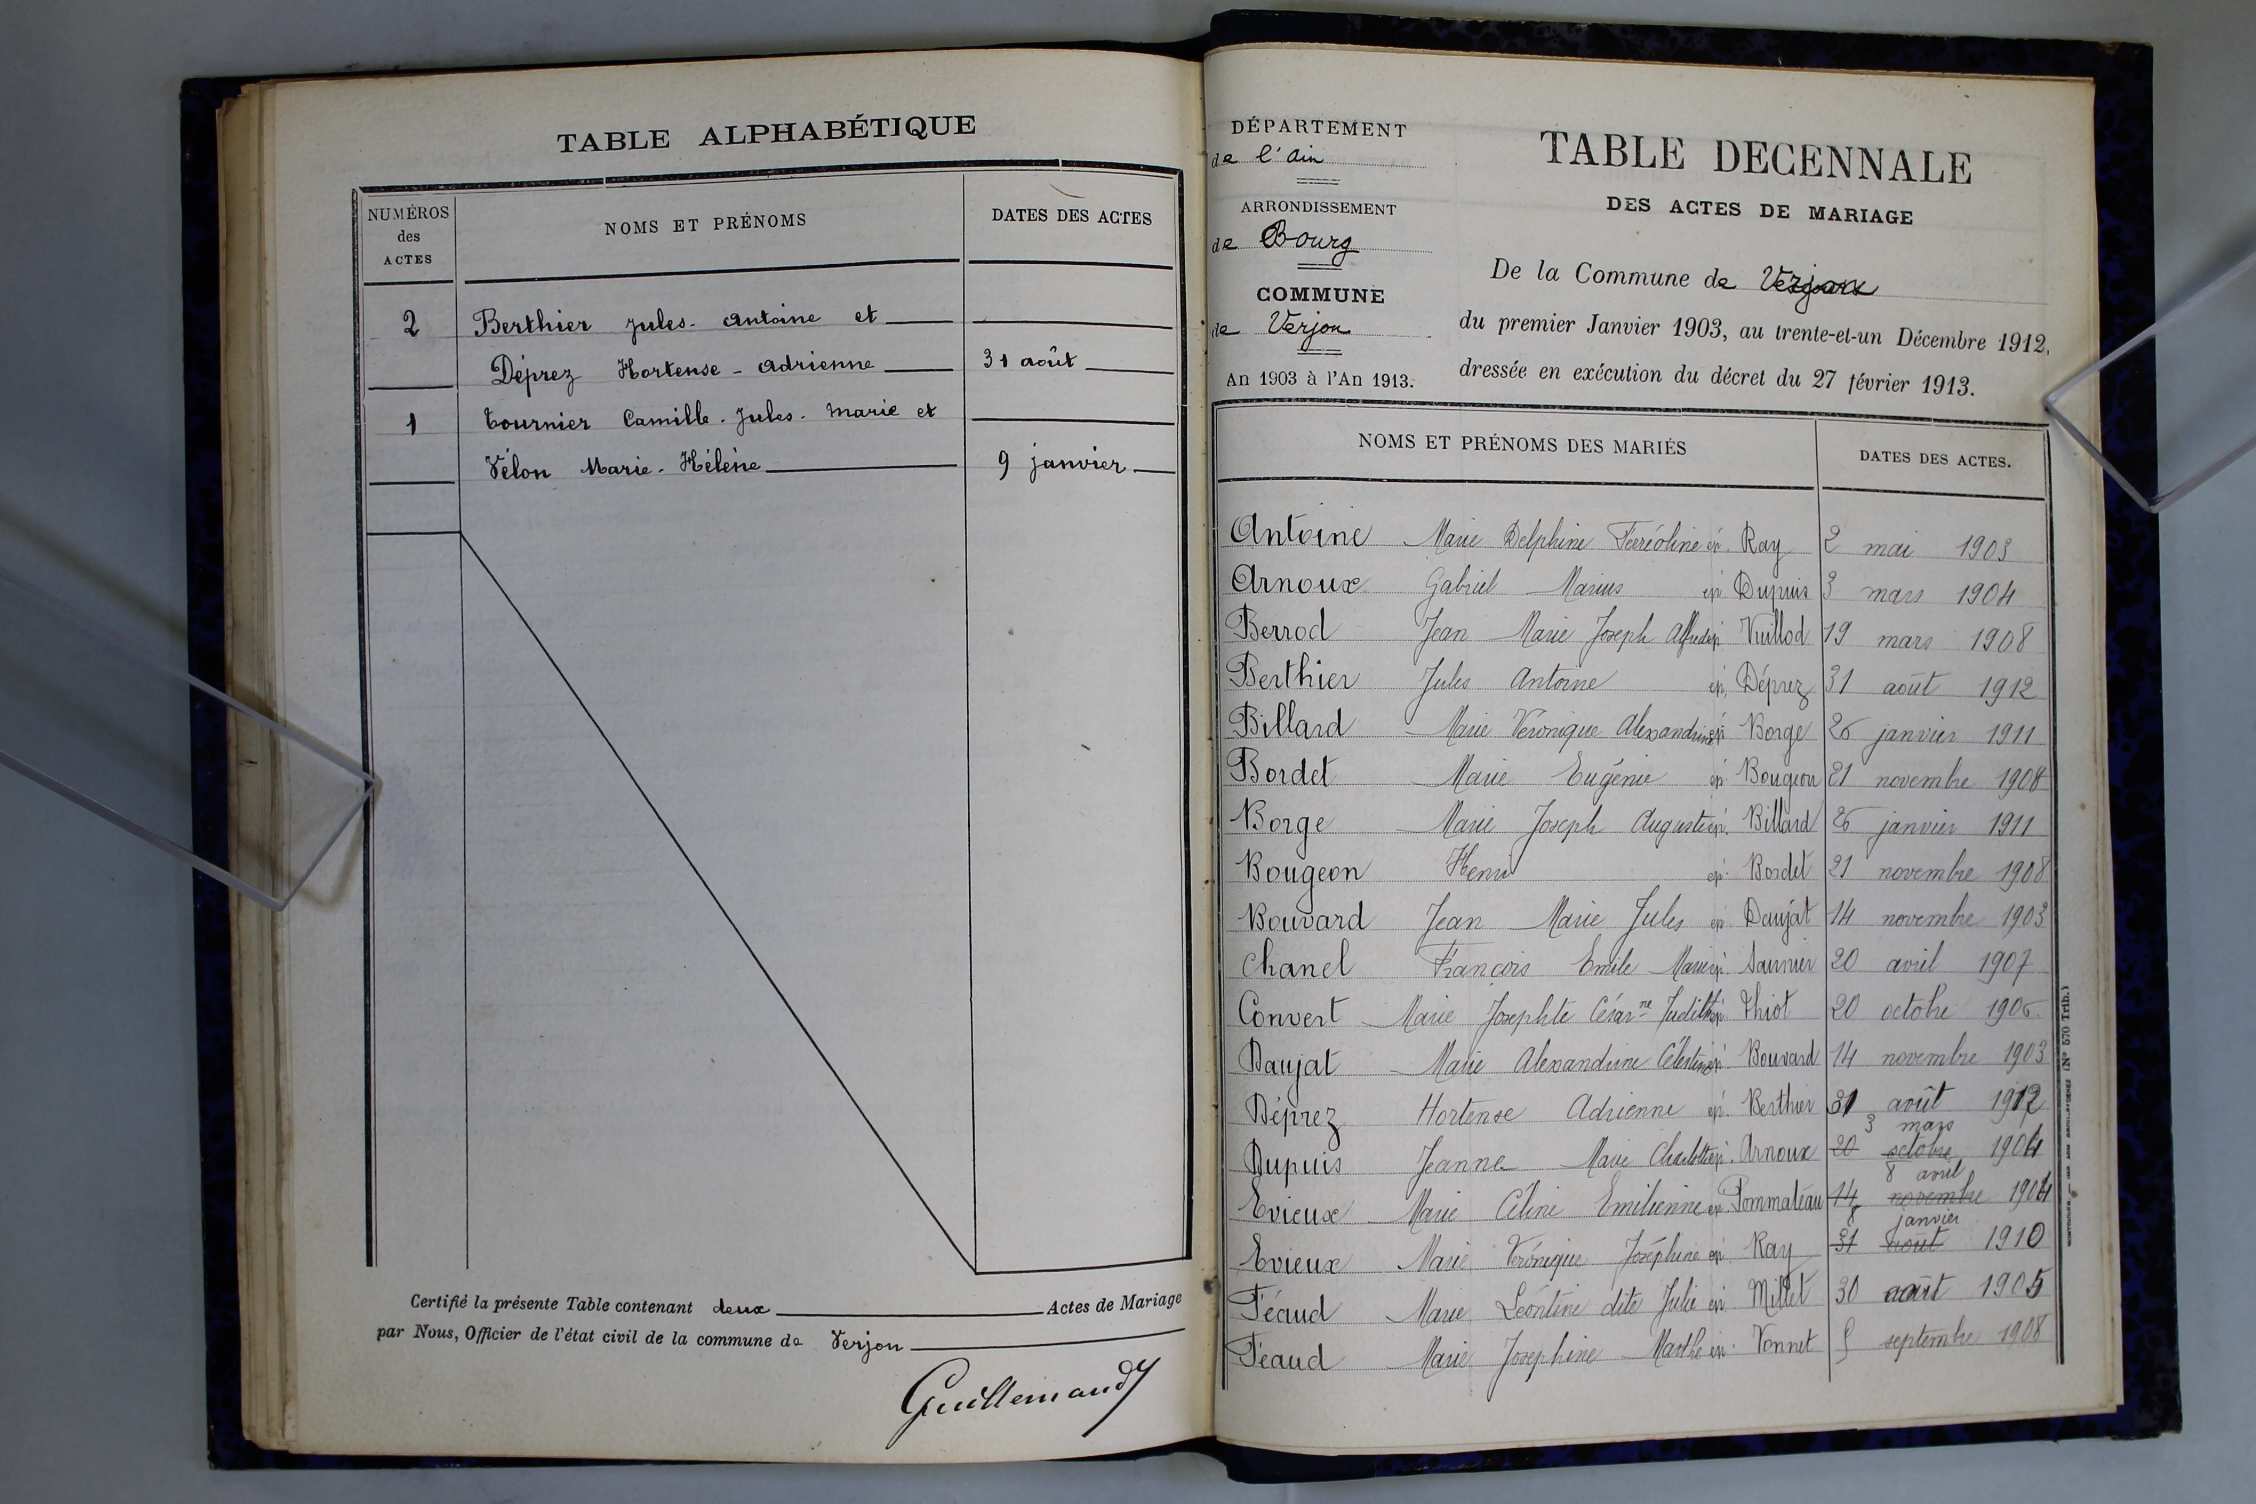 TABLE ALPHABÉTIQUE
NUMÉROS
des
ACTES
NOMS ET PRÉNOMS
DATES DES ACTES
2 Berthier Jules - Antoine et
Déprez Hortense - Adrienne 31 août
1 Tournier Camille - Jules - Marie et
Vélon Marie - Hélène 9 janvier
Certifié la présente Table contenant deux Actes de Mariage
par Nous, Officier de l'état civil de la commune de Verjon
Guillemaudy
DÉPARTEMENT
de l'Ain
ARRONDISSEMENT
de Bourg
COMMUNE
de Verjon
An 1903 à l'An 1913.
TABLE DECENNALE
DES ACTES DE MARIAGE
De la Commune de Verjon
du premier Janvier 1903, au trente-et-un Décembre 1912,
dressée en exécution du décret du 27 février 1913.
NOMS ET PRÉNOMS DES MARIÉS
DATES DES ACTES.
Antoine Marie Delphine Ferréoline ép. Ray 2 mai 1903
Arnoux Gabriel Marius ép. Dupuis 3 mars 1904
Berrod Jean Marie Joseph Alfred ép. Vuillod 19 mars 1908
Berthier Jules Antoine ép. Déprez 31 août 1912
Billard Marie Véronique Alexandrine ép. Borge 26 janvier 1911
Bordet Marie Eugénie ép. Bougeon 21 novembre 1908
Borge Marie Joseph Auguste ép. Billard 26 janvier 1911
Bougeon Henri ép. Bordet 21 novembre 1908
Bouvard Jean Marie Jules ép. Daujat 14 novembre 1903
Chanel François Emile Marie ép. Saunier 20 avril 1907
Convert Marie Josephte Césarne Judith ép. Thiot 20 octobre 1906
Daujat Marie Alexandrine Célestine ép. Bouvard 14 novembre 1903
Déprez Hortense Adrienne ép. Berthier 31 août 1912
3 mars
Dupuis Jeanne Marie Charlotte ép. Arnoux 20 octobre 1904
8 avril
Evieux Marie Céline Emilienne ép. Pommatéau 14 novembre 1904
8 janvier
Evieux Marie Véronique Joséphine ép. Ray 31 août 1910
Féaud Marie Léontine dite Julie ép. Millet 30 août 1905
Féaud Marie Josephine Marthe ép. Vonnet 5 septembre 1908
(N° 570 Trib.)